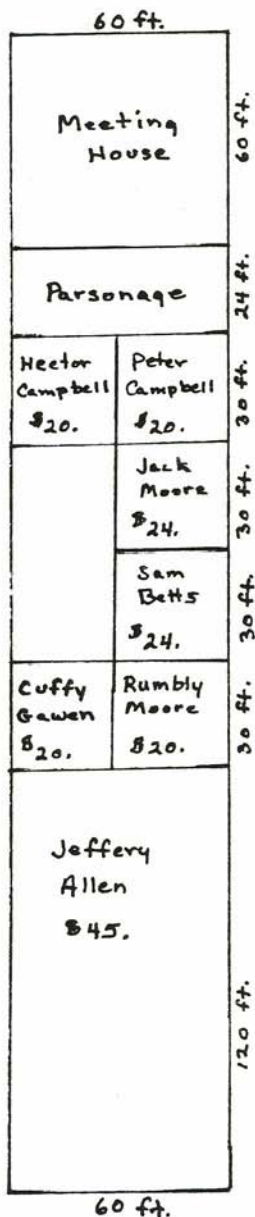 60 ft.
Meeting
House
60 ft.
Parsonage
24 ft.
Hector
Campbell
$20.
Peter
Campbell
$20.
30 ft.
Jack
Moore
$24.
30 ft.
Sam
Betts
$24.
30 ft.
Cuffy
Gawen
$20.
Rumbly
Moore
$20.
30 ft.
Jeffery
Allen
$45.
120 ft.
60 ft.